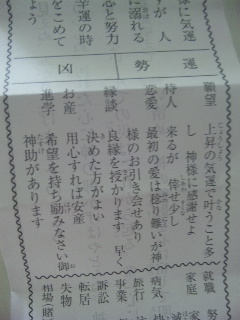 様に気運
すが 人
に溺れる
心と努力
幸運の時
をこめて
よう
運勢 凶
願望 上昇の気運で叶うこと多
し 神様に感謝せよ
待人 来るが 倖せ少し
恋愛 最初の愛は稔り難いが神
様のお引き会せあり
縁談 良縁を授かります 早く
決めた方がよい
お産 用心すれば安産
進学 希望を持ち励みなさい御
神助があります
就職
家庭
病気
旅行
事業
訴訟
転居
失物
相場